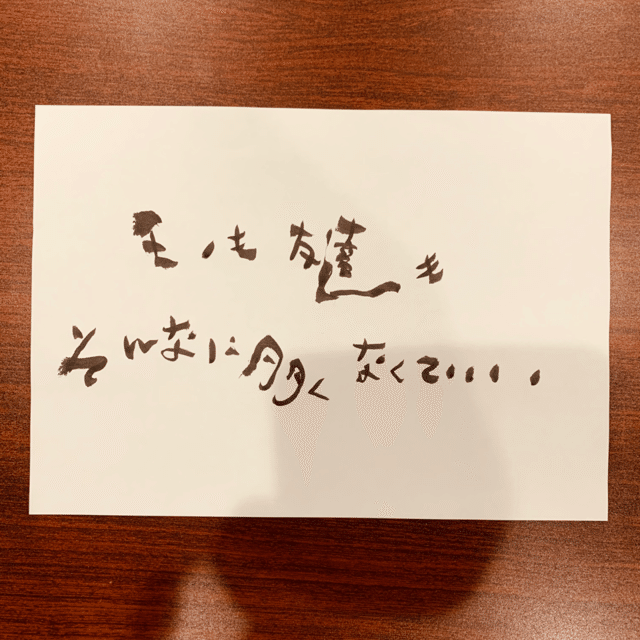 も友達も
そんなに多くなくていい。